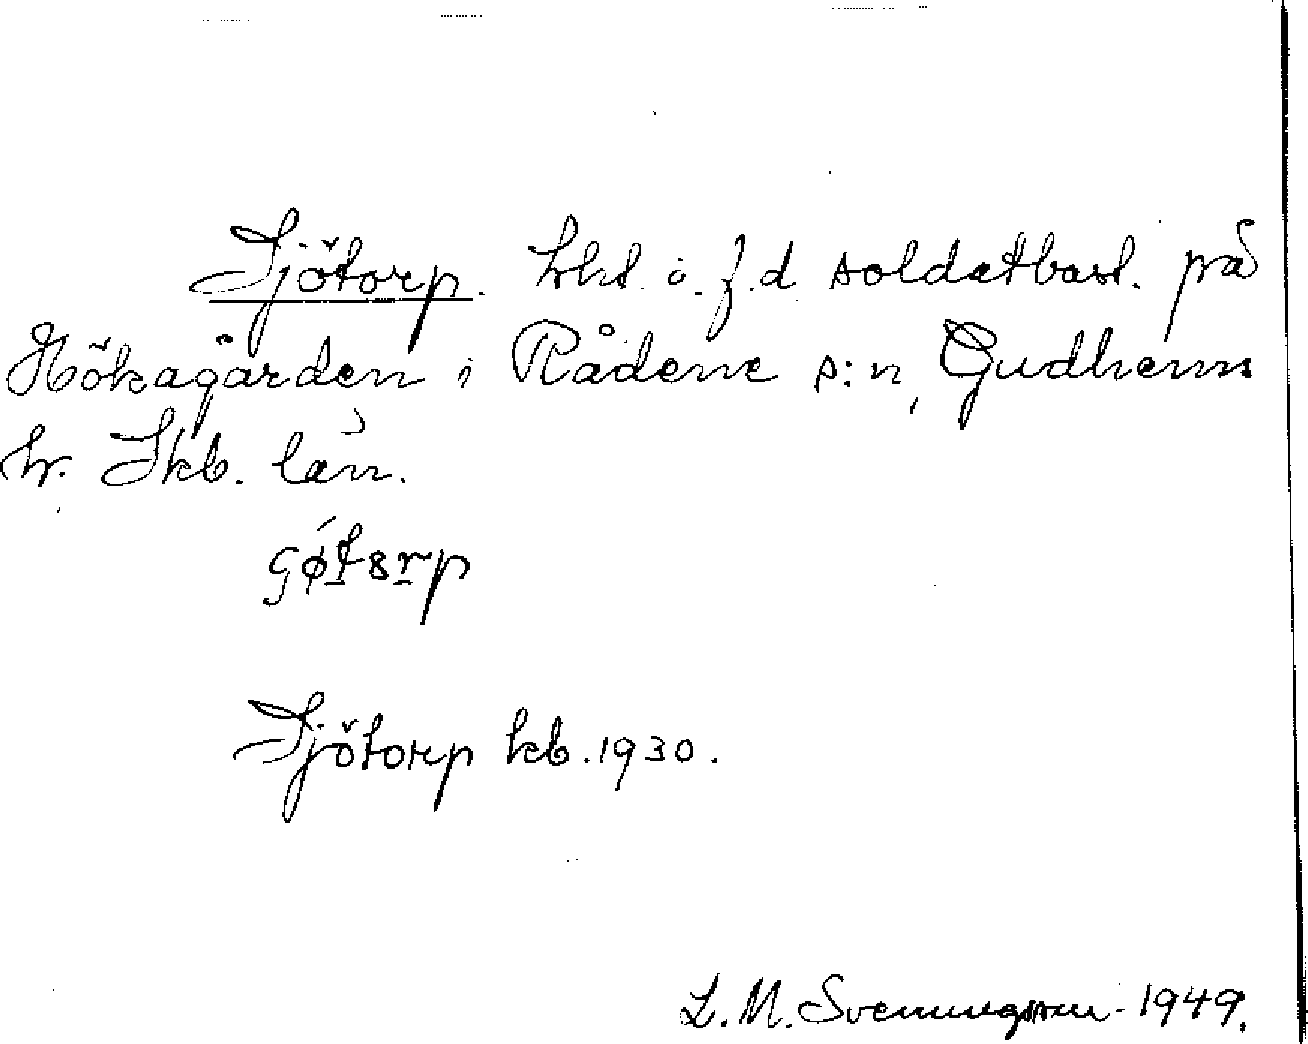 Sjötorp. lht. o. f.d soldatbost. på
Hökagården i Rådene s:n, Gudhems
hr. Skb. län.
Sjötorp kb. 1930.
L. M. Svenungsson 1949.